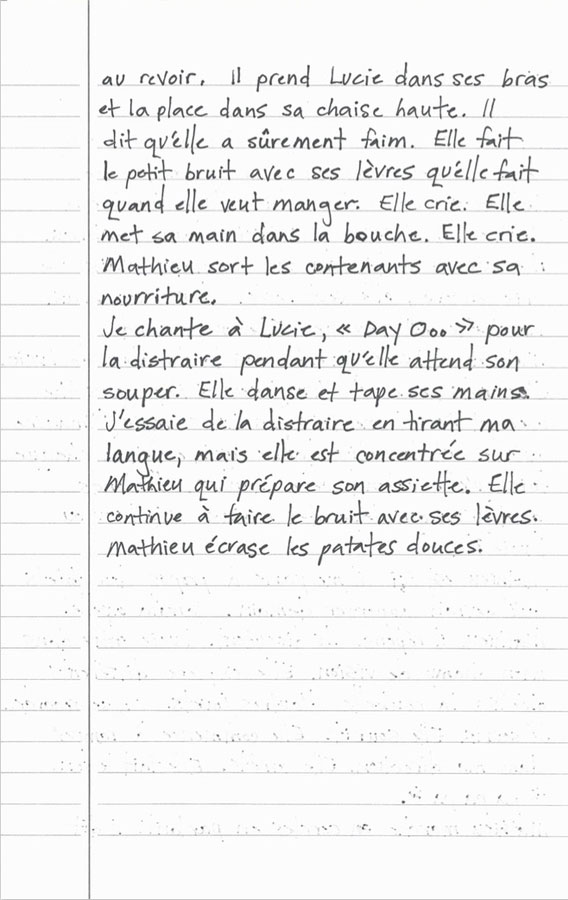 au revoir. Il prend Lucie dans ses bras
et la place dans sa chaise haute. Il
dit qu'elle a sûrement faim. Elle fait
le petit bruit avec ses lèvres qu'elle fait
quand elle veut manger. Elle crie. Elle
met sa main dans la bouche. Elle crie.
Mathieu sort les contenants avec sa
nourriture.
Je chante à Lucie, « Day Ooo » pour
la distraire pendant qu'elle attend son
souper. Elle danse et tape ses mains.
J'essaie de la distraire en tirant ma
langue, mais elle est concentrée sur
Mathieu qui prépare son assiette. Elle
continue à faire le bruit avec ses lèvres.
Mathieu écrase les patates douces.